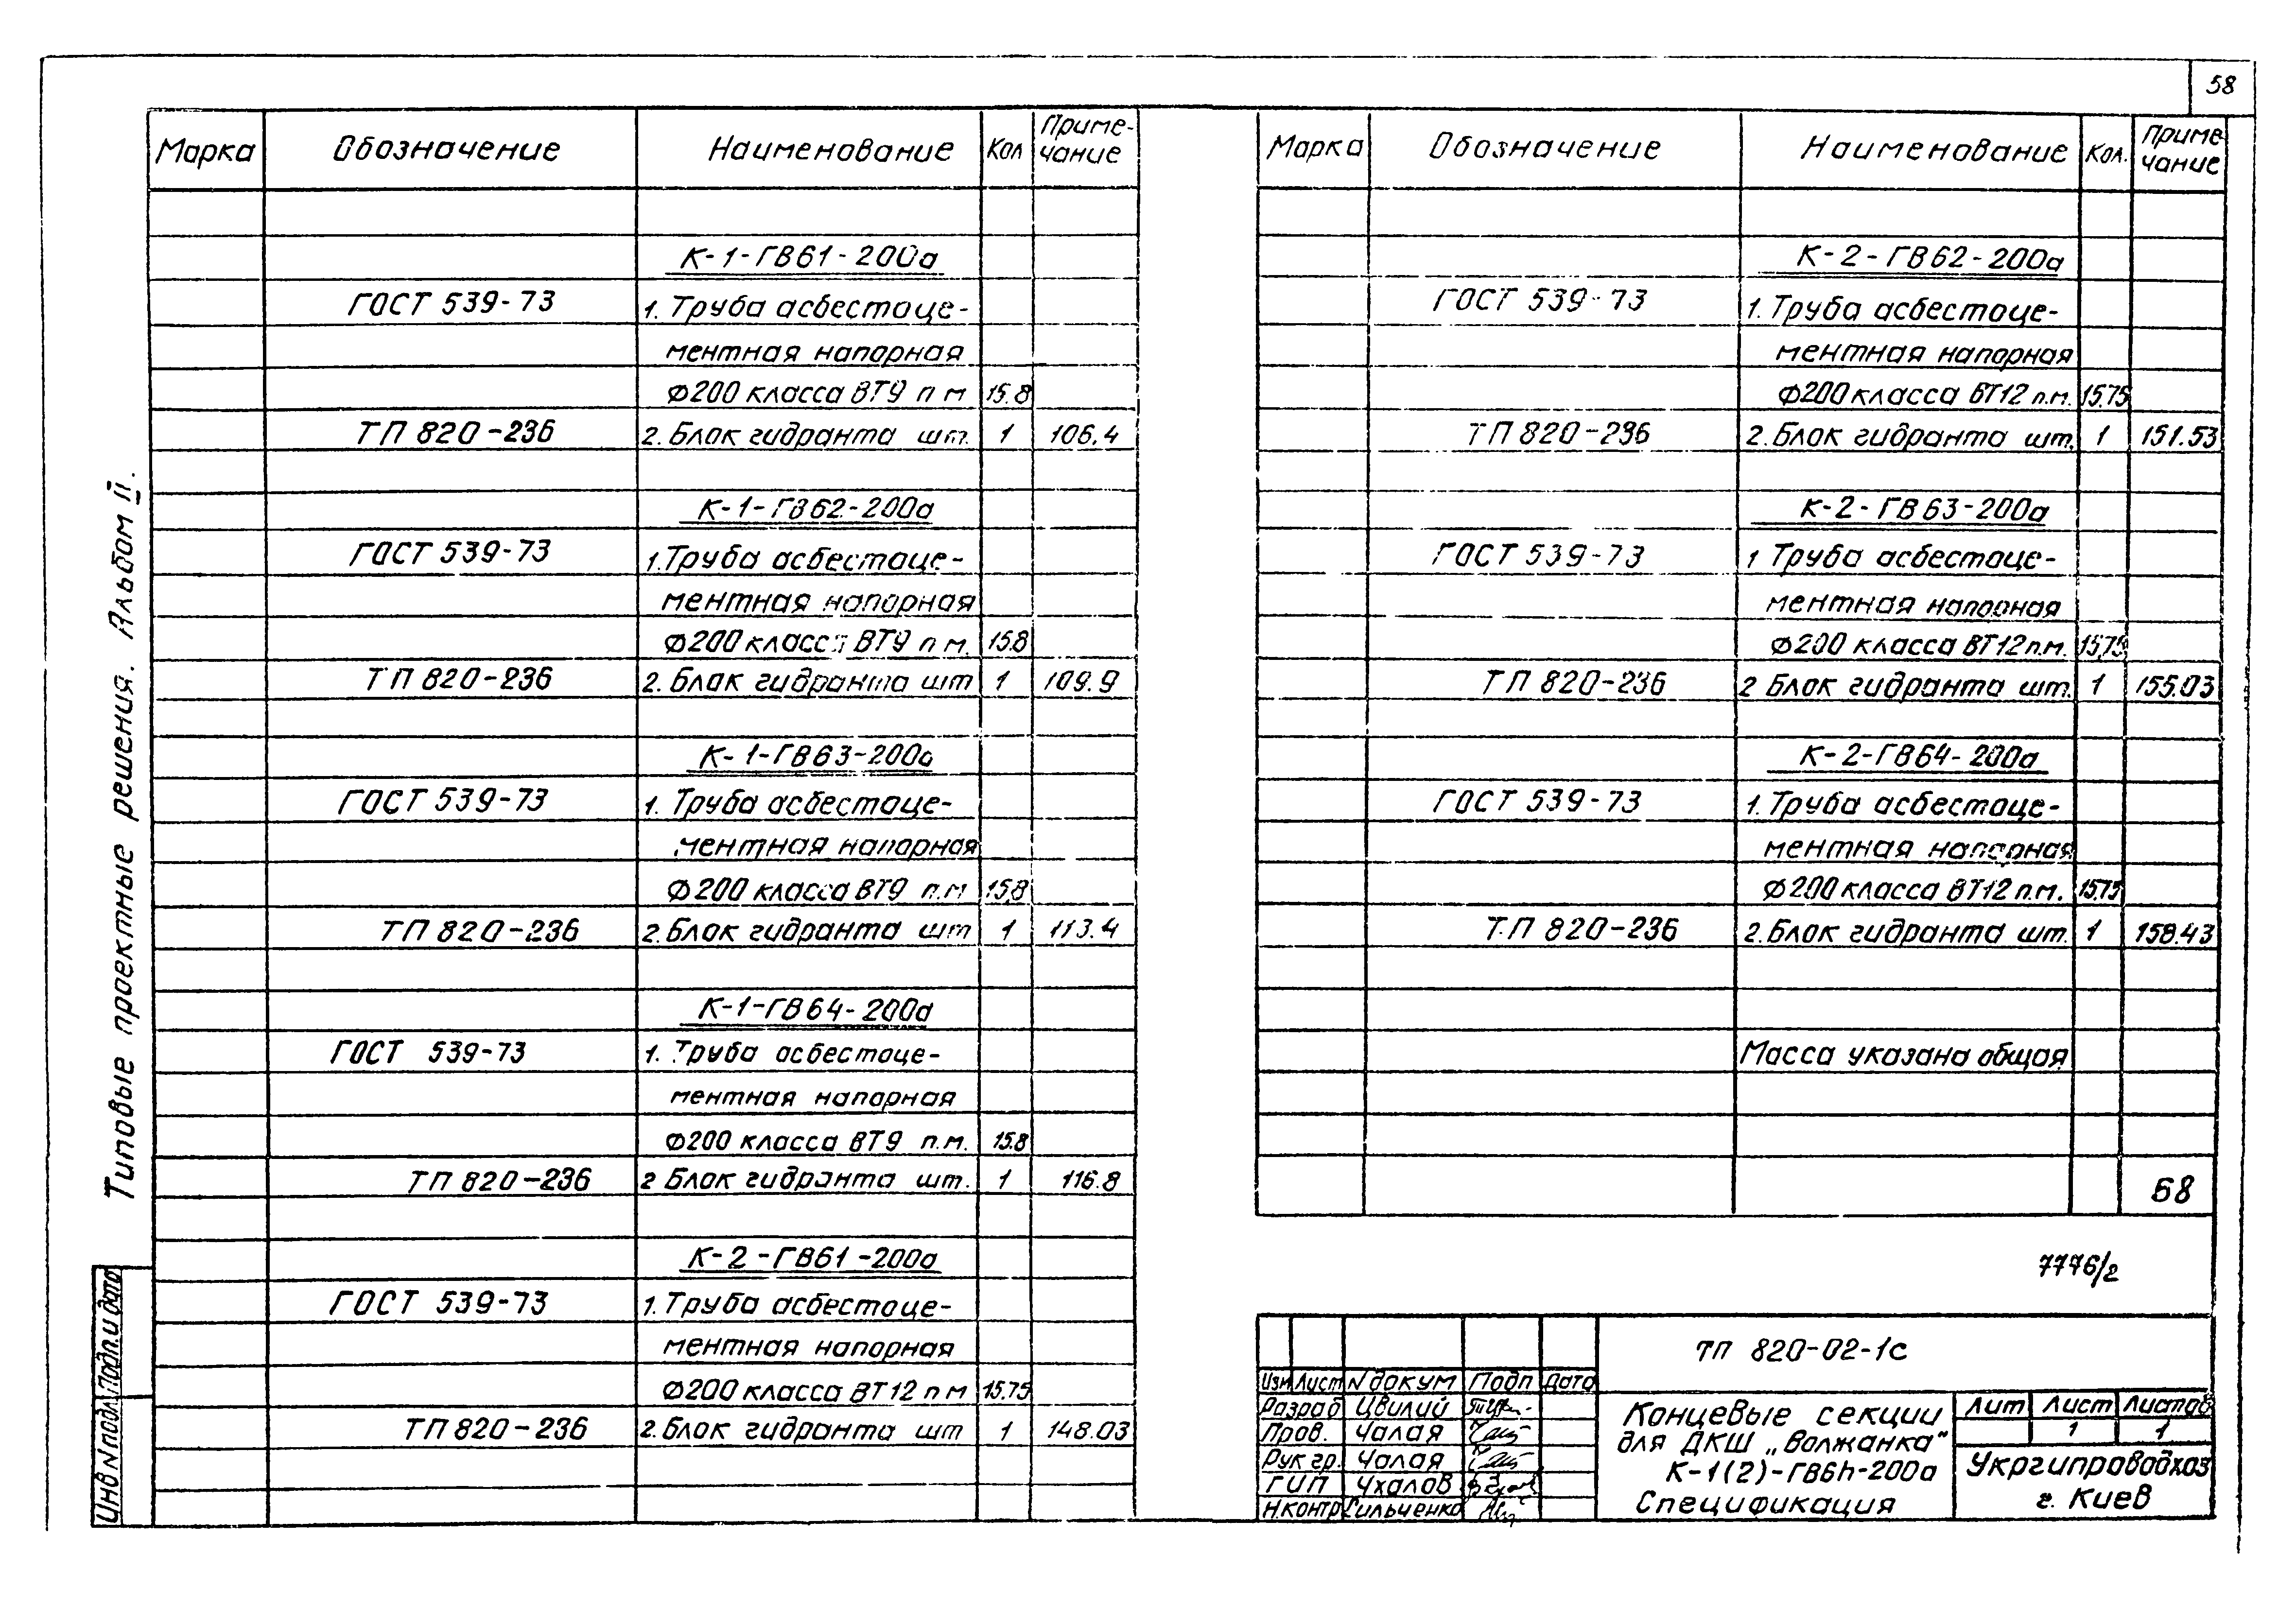 58
Марка Обозначение Наименование Кол Приме-
чание
К-1-ГВ61-200а
ГОСТ 539-73 1. Труба асбестоце-
ментная напорная
Ф200 класса ВТ9 п м 15.8
ТП 820-236 2. Блок гидранта шт. 1 106.4
К-1-ГВ62-200а
ГОСТ 539-73 1. Труба асбестоце-
ментная напорная
Ф200 класса ВТ9 п м. 15.8
ТП 820-236 2. Блок гидранта шт 1 109.9
К-1-ГВ63-200а
ГОСТ 539-73 1. Труба асбестоце-
ментная напорная
Ф200 класса ВТ9 п.м 15,8
ТП 820-236 2. Блок гидранта шт 1 113.4
К-1-ГВ64-200а
ГОСТ 539-73 1. Труба асбестоце-
ментная напорная
Ф200 класса ВТ9 п.м. 15.8
ТП 820-236 2 Блок гидранта шт. 1 116.8
К-2-ГВ61-200а
ГОСТ 539-73 1. Труба асбестоце-
ментная напорная
Ф200 класса ВТ12 п м 15.75
ТП 820-236 2. Блок гидранта шт 1 148.03
Марка Обозначение Наименование Кол. Приме-
чание
К-2-ГВ62-200а
ГОСТ 539-73 1. Труба асбестоце-
ментная напорная
Ф200 класса ВТ12 п.м. 15.75
ТП 820-236 2. Блок гидранта шт. 1 151.53
К-2-ГВ63-200а
ГОСТ 539-73 1 Труба асбестоце-
ментная напорная
Ф200 класса ВТ12 п.м. 15,75
ТП 820-236 2 Блок гидранта шт. 1 155.03
К-2-ГВ64-200а
ГОСТ 539-73 1. Труба асбестоце-
ментная напорная
Ф200 класса ВТ12 п.м. 15.75
ТП 820-236 2. Блок гидранта шт. 1 158.43
Масса указана общая
58
7776/2
Типовые проектные решения. Альбом II.
Инв N подл. Подп. и дата
ТП 820-02-1с
Изм Лист N докум Подп Дата
Разраб Цвилий
Пров. Чалая
Рук гр. Чалая
ГИП Чхалов
Н.контр Сильченко
Концевые секции
для ДКШ „Волжанка"
К-1(2)-ГВ6h-200а
Спецификация
Лит Лист Листов
1 1
Укргипроводхоз
г. Киев